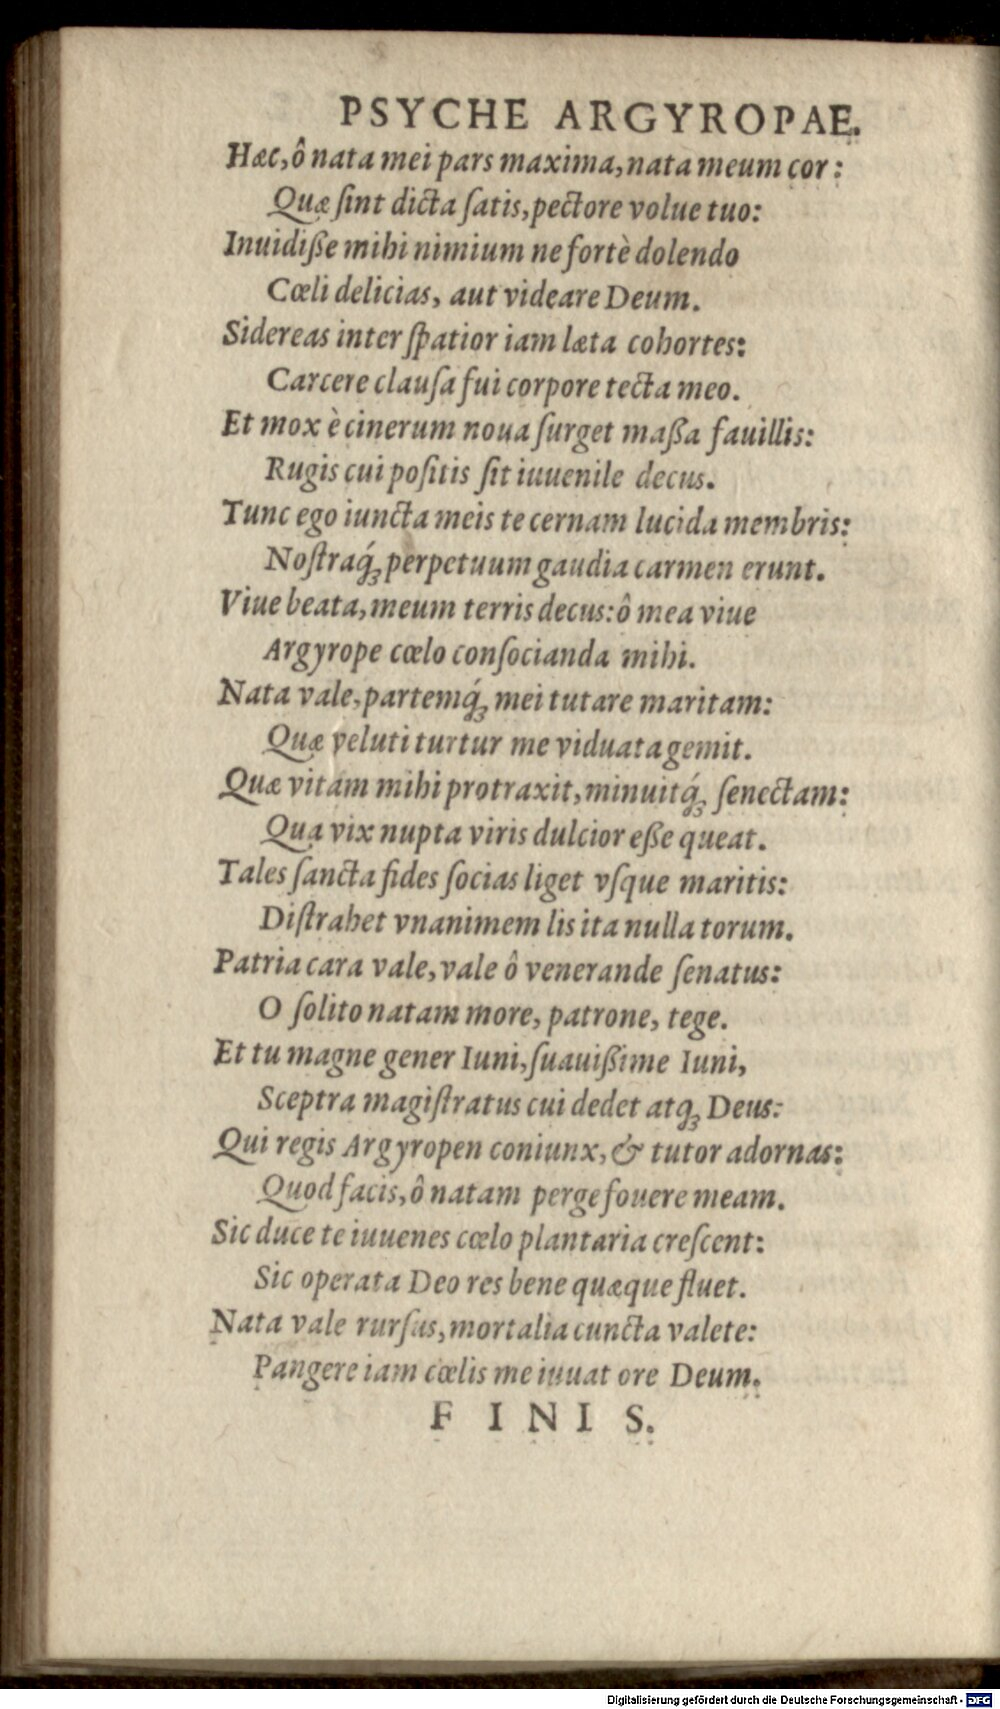 PSYCHE ARGYROPAE.
Hæc, ô nata mei pars maxima, nata meum cor:
Quæ ſint dicta ſatis, pectore volue tuo:
Inuidiße mihi nimium ne fortè dolendo
Cœli delicias, aut videare Deum.
Sidereas inter ſpatior iam læta cohortes:
Carcere clauſa fui corpore tecta meo.
Et mox è cinerum noua ſurget maßa fauillis:
Rugis cui poſitis ſit iuuenile decus.
Tunc ego iuncta meis te cernam lucida membris:
Noſtraq́ꝫ perpetuum gaudia carmen erunt.
Viue beata, meum terris decus: ô mea viue
Argyrope cœlo conſocianda mihi.
Nata vale, partemq́ꝫ mei tutare maritam:
Quæ veluti turtur me viduata gemit.
Quæ vitam mihi protraxit, minuitq́ꝫ ſenectam:
Qua vix nupta viris dulcior eße queat.
Tales ſancta fides ſocias liget vſque maritis:
Diſtrahet vnanimem lis ita nulla torum.
Patria cara vale, vale ô venerande ſenatus:
O ſolito natam more, patrone, tege.
Et tu magne gener Iuni, ſuauißime Iuni,
Sceptra magiſtratus cui dedet atqꝫ Deus:
Qui regis Argyropen coniunx, & tutor adornas:
Quod facis, ô natam perge fouere meam.
Sic duce te iuuenes cœlo plantaria creſcent:
Sic operata Deo res bene quæque fluet.
Nata vale rurſus, mortalia cuncta valete:
Pangere iam cœlis me iuuat ore Deum.
FINIS.
Digitalisierung gefördert durch die Deutsche Forschungsgemeinschaft - DFG